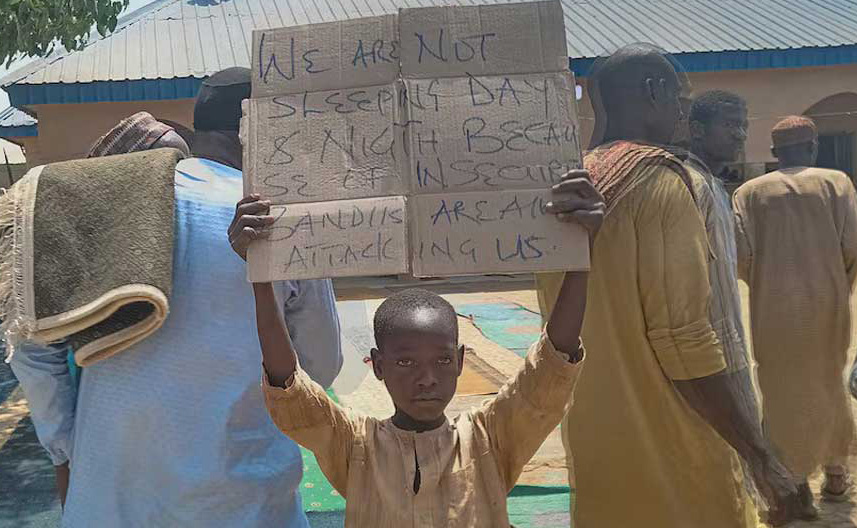 WE ARE NOT
SLEEPING DAY
& NIGTH BECAU
SE OF INSECURE
BANDITS ARE AL
ATTACKING US.